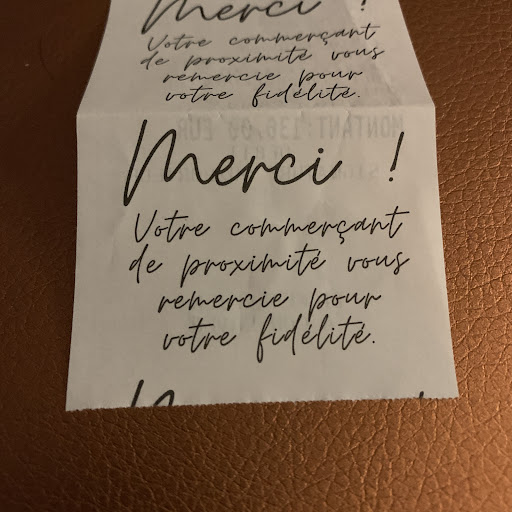 Merci !
Votre commerçant
de proximité vous
remercie pour
votre fidélité.
Merci !
Votre commerçant
de proximité vous
remercie pour
votre fidélité.